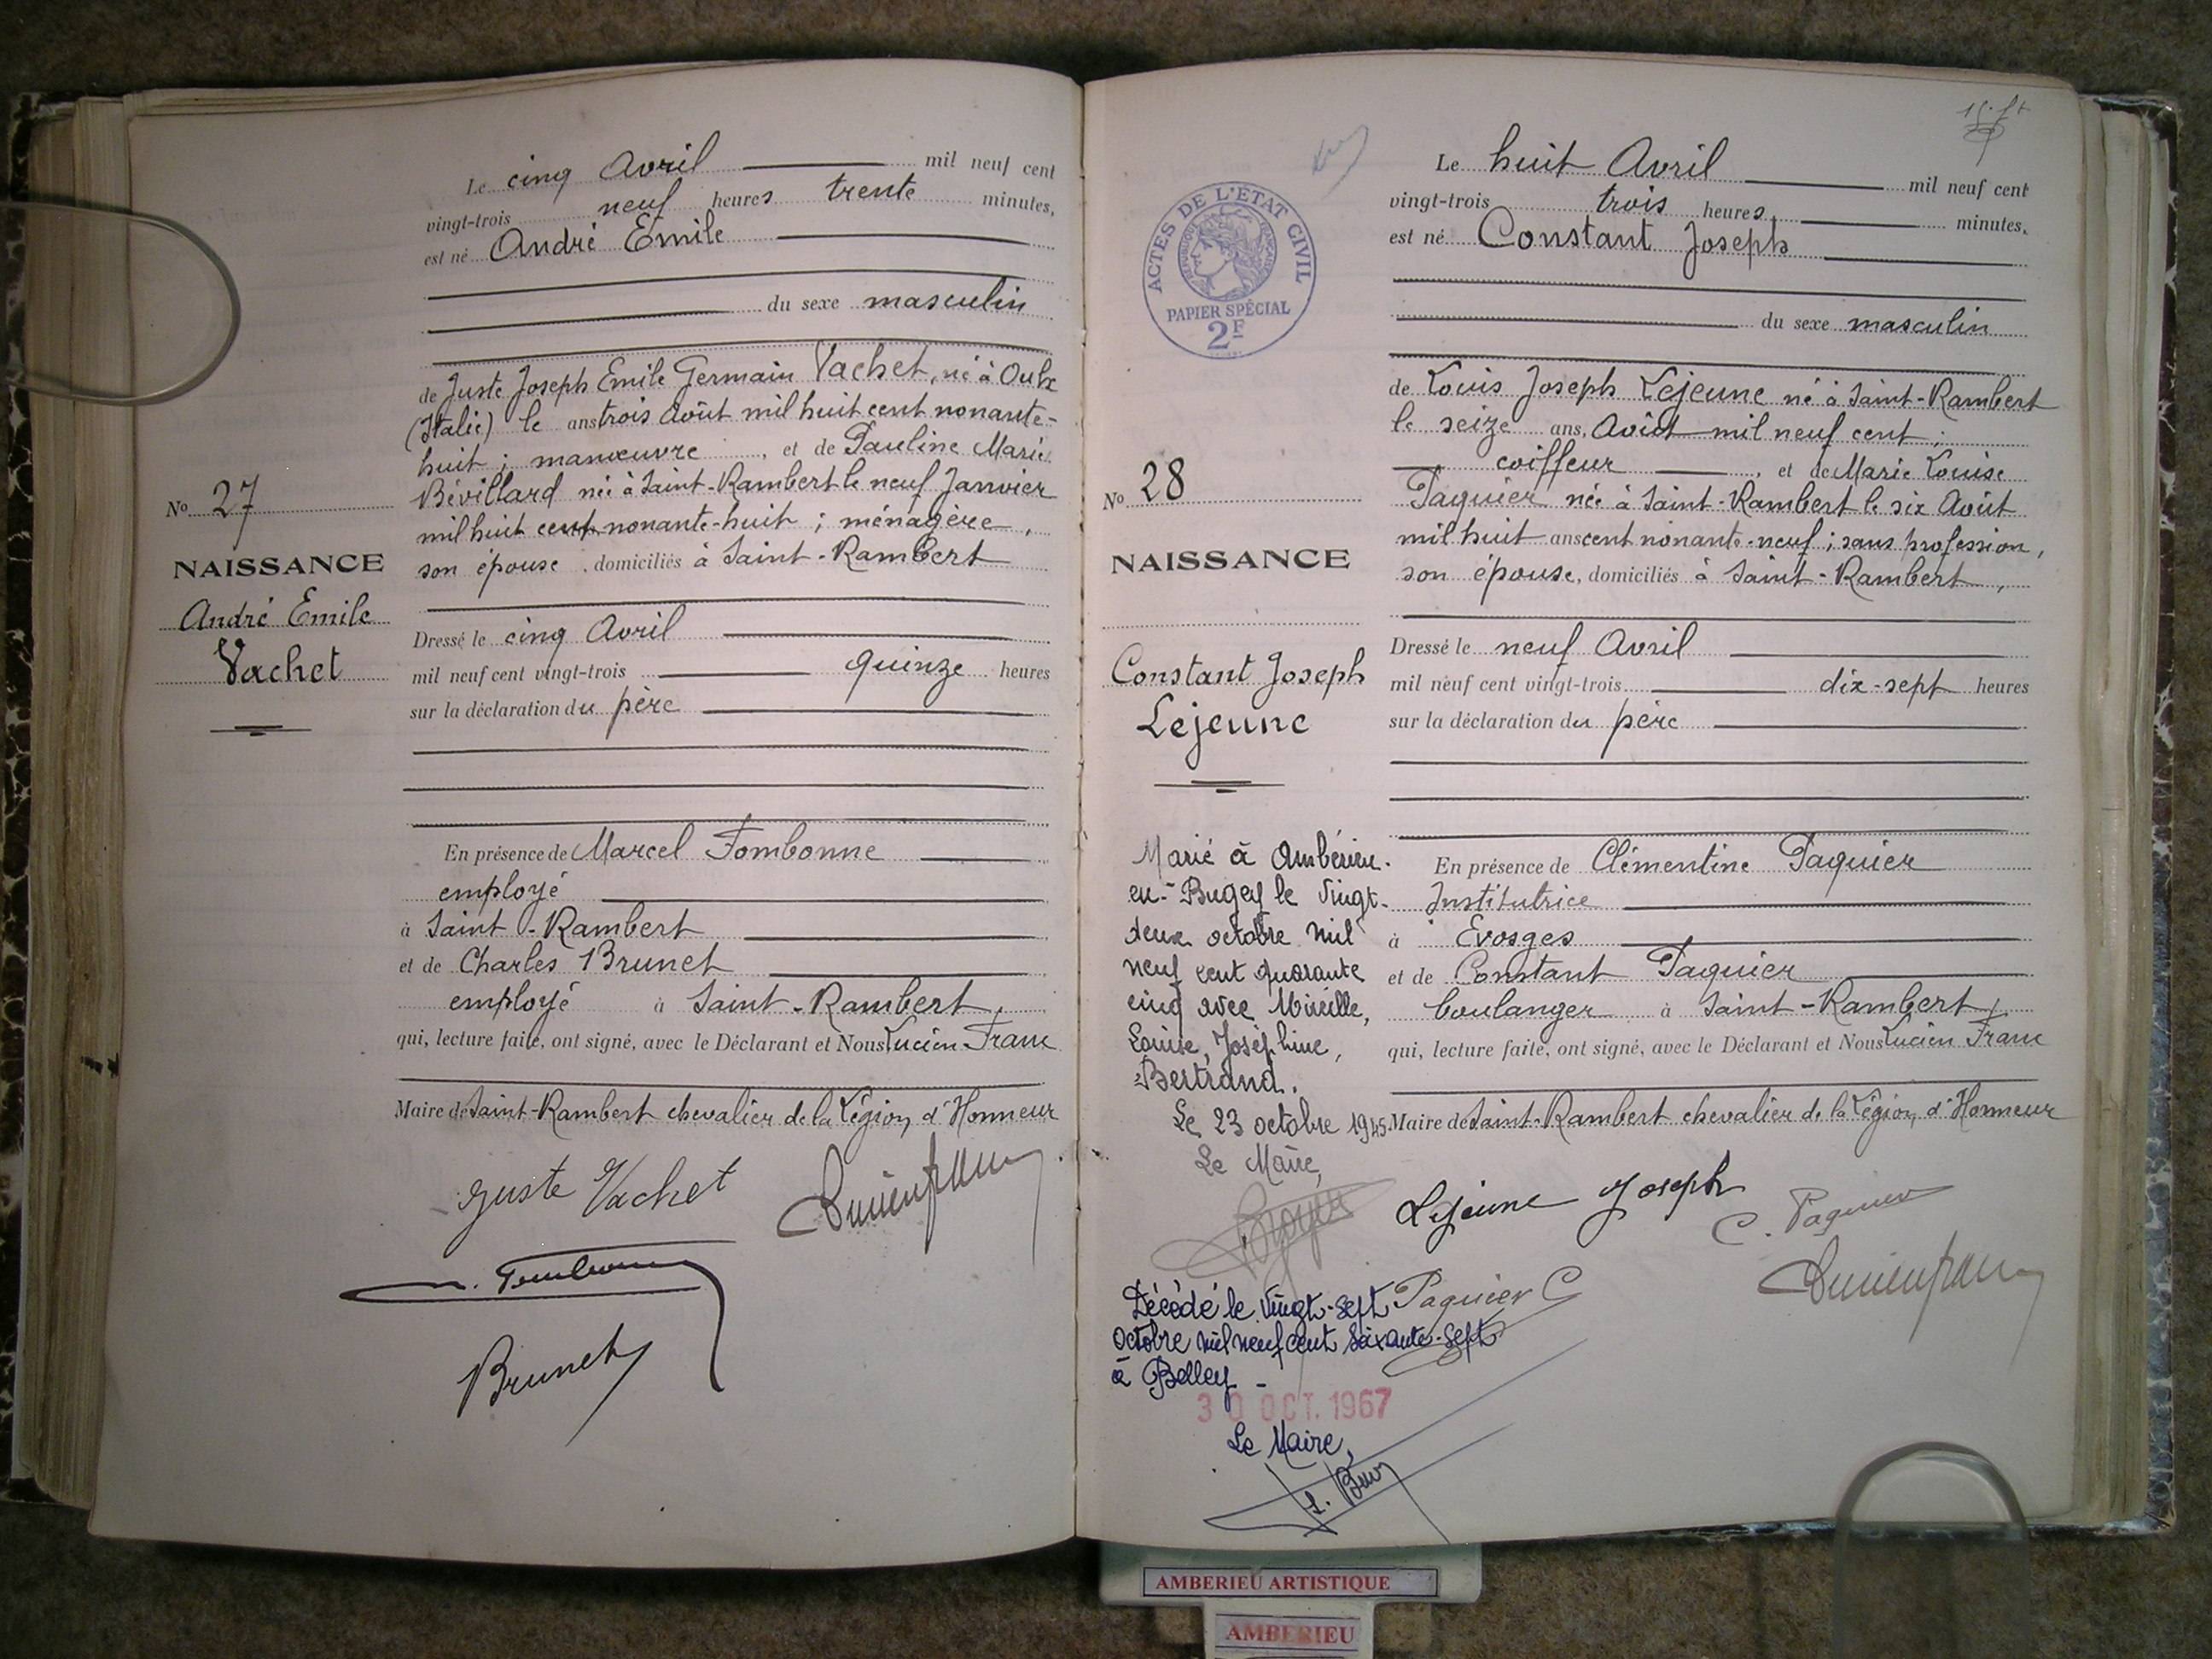 Le cinq Avril mil neuf cent
vingt-trois neuf heures trente minutes,
est né André Emile
du sexe masculin
de Juste Joseph Emile Germain Vachet, né à Oulx
(Italie) le ans trois Août mil huit cent nonante-
huit ; manœuvre, et de Pauline Marie
Bévillard née à Saint-Rambert le neuf Janvier
mil huit cent nonante-huit ; ménagère,
son épouse, domiciliés à Saint-Rambert
No 27
NAISSANCE
André Emile
Vachet
Dressé le cinq Avril
mil neuf cent vingt-trois quinze heures
sur la déclaration du père
En présence de Marcel Fombonne
employé
à Saint-Rambert
et de Charles Brunet
employé à Saint-Rambert,
qui, lecture faite, ont signé, avec le Déclarant et Nous Lucien Franc
Maire de Saint-Rambert chevalier de la Légion d'Honneur
Juste Vachet
Lucien Franc
Brunet
ACTES DE L'ÉTAT CIVIL
RÉPUBLIQUE FRANÇAISE
PAPIER SPÉCIAL
2F
Le huit Avril mil neuf cent
vingt-trois trois heures minutes,
est né Constant Joseph
du sexe masculin
de Louis Joseph Lejeune né à Saint-Rambert
le seize ans, Août mil neuf cent ;
coiffeur, et de Marie Louise
Paquier née à Saint-Rambert le six Août
mil huit ans cent nonante-neuf ; sans profession,
son épouse, domiciliés à Saint-Rambert,
No 28
NAISSANCE
Constant Joseph
Lejeune
Dressé le neuf Avril
mil neuf cent vingt-trois dix-sept heures
sur la déclaration du père
En présence de Clémentine Paquier
Institutrice
à Evosges
et de Constant Paquier
boulanger à Saint-Rambert,
qui, lecture faite, ont signé, avec le Déclarant et Nous Lucien Franc
Maire de Saint-Rambert chevalier de la Légion d'Honneur
Lejeune Joseph
C. Paquier
Paquier C
Lucien Franc
Marié à Ambérieu-
en-Bugey le vingt-
deux octobre mil
neuf cent quarante
cinq avec Mireille,
Louise, Joséphine,
Bertrand.
Le 23 octobre 1945
Le Maire,
Décédé le vingt-sept
octobre mil neuf cent soixante-sept
à Belley -
30 OCT. 1967
Le Maire,
AMBERIEU ARTISTIQUE
AMBERIEU